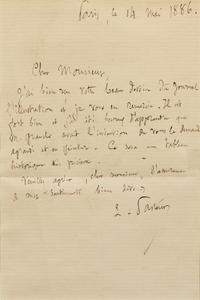 Paris, ce 14 mai 1886.
Cher Monsieur,
J'ai bien reçu votre beau dessin du journal
l'Illustration et je vous en remercie. Il est
fort bien et j'ai été heureux d'apprendre que
M. avait l'intention de vous le demander
agrandi et en peinture. Ce sera un tableau
historique
Veuillez agréer, cher monsieur, l'assurance
de mes sentiments bien
L. Pasteur